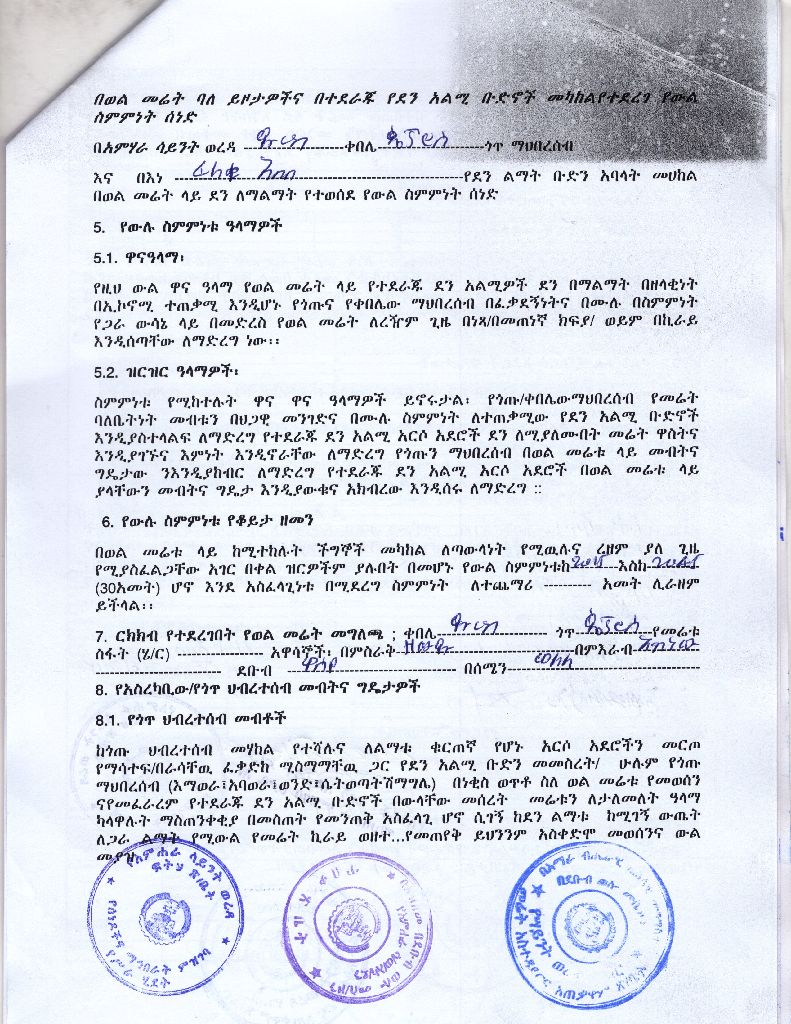 በወል መሬት ባለ ይዞታዎችና በተደራጁ የደን አልሚ ቡድኖች መካከልየተደረገ የውል
ስምምነት ሰነድ
በአምሃራ ሳይንት ወረዳ ቀበሌ ጎጥ ማህበረሰብ
እና በእነ የደን ልማት ቡድን አባላት መሀከል
በወል መሬት ላይ ደን ለማልማት የተወሰደ የውል ስምምነት ሰነድ
5. የውሉ ስምምነቱ ዓላማዎች
5.1. ዋናዓላማ፡
የዚህ ውል ዋና ዓላማ የወል መሬት ላይ የተደራጁ ደን አልሚዎች ደን በማልማት በዘላቂነት
በኢኮኖሚ ተጠቃሚ እንዲሆኑ የጎጡና የቀበሌው ማህበረሰብ በፈቃደኝነትና በሙሉ በስምምነት
የጋራ ውሳኔ ላይ በመድረስ የወል መሬት ለረዥም ጊዜ በነጻ/በመጠነኛ ክፍያ/ ወይም በኪራይ
እንዲሰጣቸው ለማድረግ ነው፡፡
5.2. ዝርዝር ዓላማዎች፡
ስምምነቱ የሚከተሉት ዋና ዋና ዓላማዎች ይኖሩታል፡ የጎጡ/ቀበሌውማህበረሰብ የመሬት
ባለቤትነት መብቱን በህጋዊ መንገድና በሙሉ ስምምነት ለተጠቃሚው የደን አልሚ ቡድኖች
እንዲያስተላልፍ ለማድረግ የተደራጁ ደን አልሚ አርሶ አደሮች ደን ለሚያለሙበት መሬት ዋስትና
እንዲያገኙና እምነት እንዲኖራቸው ለማድረግ የጎጡን ማህበረሰብ በወል መሬቱ ላይ መብትና
ግዴታው ንእንዲያከብር ለማድረግ የተደራጁ ደን አልሚ አርሶ አደሮች በወል መሬቱ ላይ
ያላቸውን መብትና ግዴታ እንዲያውቁና አክብረው እንዲሰሩ ለማድረግ ፡፡
6. የውሉ ስምምነቱ የቆይታ ዘመን
በወል መሬቱ ላይ ከሚተከሉት ችግኞች መካከል ለጣውላነት የሚዉሉና ረዘም ያለ ጊዜ
የሚያስፈልጋቸው አገር በቀል ዝርዎችም ያሉበት በመሆኑ የውል ስምምነቱከ እስከ
(30አመት) ሆኖ እንደ አስፈላጊነቱ በሚደረግ ስምምነት ለተጨማሪ ---------- አመት ሊራዘም
ይችላል፡፡
7. ርክክብ የተደረገበት የወል መሬት መግለጫ ; ቀበሌ ጎጥ የመሬቱ
ስፋት (ሄ/ር) ------------------ አዋሳኞች፡ በምስራቅ በምእራብ
ደቡብ በሰሜን
8. የአስረካቢው/የጎጥ ህብረተሰብ መብትና ግዴታዎች
8.1. የጎጥ ህብረተሰብ መብቶች
ከጎጡ ህብረተሰብ መሃከል የተሻሉና ለልማቱ ቁርጠኛ የሆኑ አርሶ አደሮችን መርጦ
የማሳተፍ/በራሳቸዉ ፈቃድከ ሚስማማቸዉ ጋር የደን አልሚ ቡድን መመስረት/ ሁሉም የጎጡ
ማህበረሰብ (እማወራ፣አባወራ፣ወንድ፣ሴትወጣትሽማግሌ) በነቂስ ወጥቶ ስለ ወል መሬቱ የመወሰን
ናየመፈራረም የተደራጁ ደን አልሚ ቡድኖች በውላቸው መሰረት መሬቱን ለታለመለት ዓላማ
ካላዋሉት ማስጠንቀቂያ በመስጠት የመንጠቅ አስፈላጊ ሆኖ ሲገኝ ከደን ልማቱ ከሚገኝ ውጤት
ለጋራ ልማት የሚውል የመሬት ኪራይ ወዘተ...የመጠየቅ ይህንንም አስቀድሞ መወሰንና ውል
መያዝ